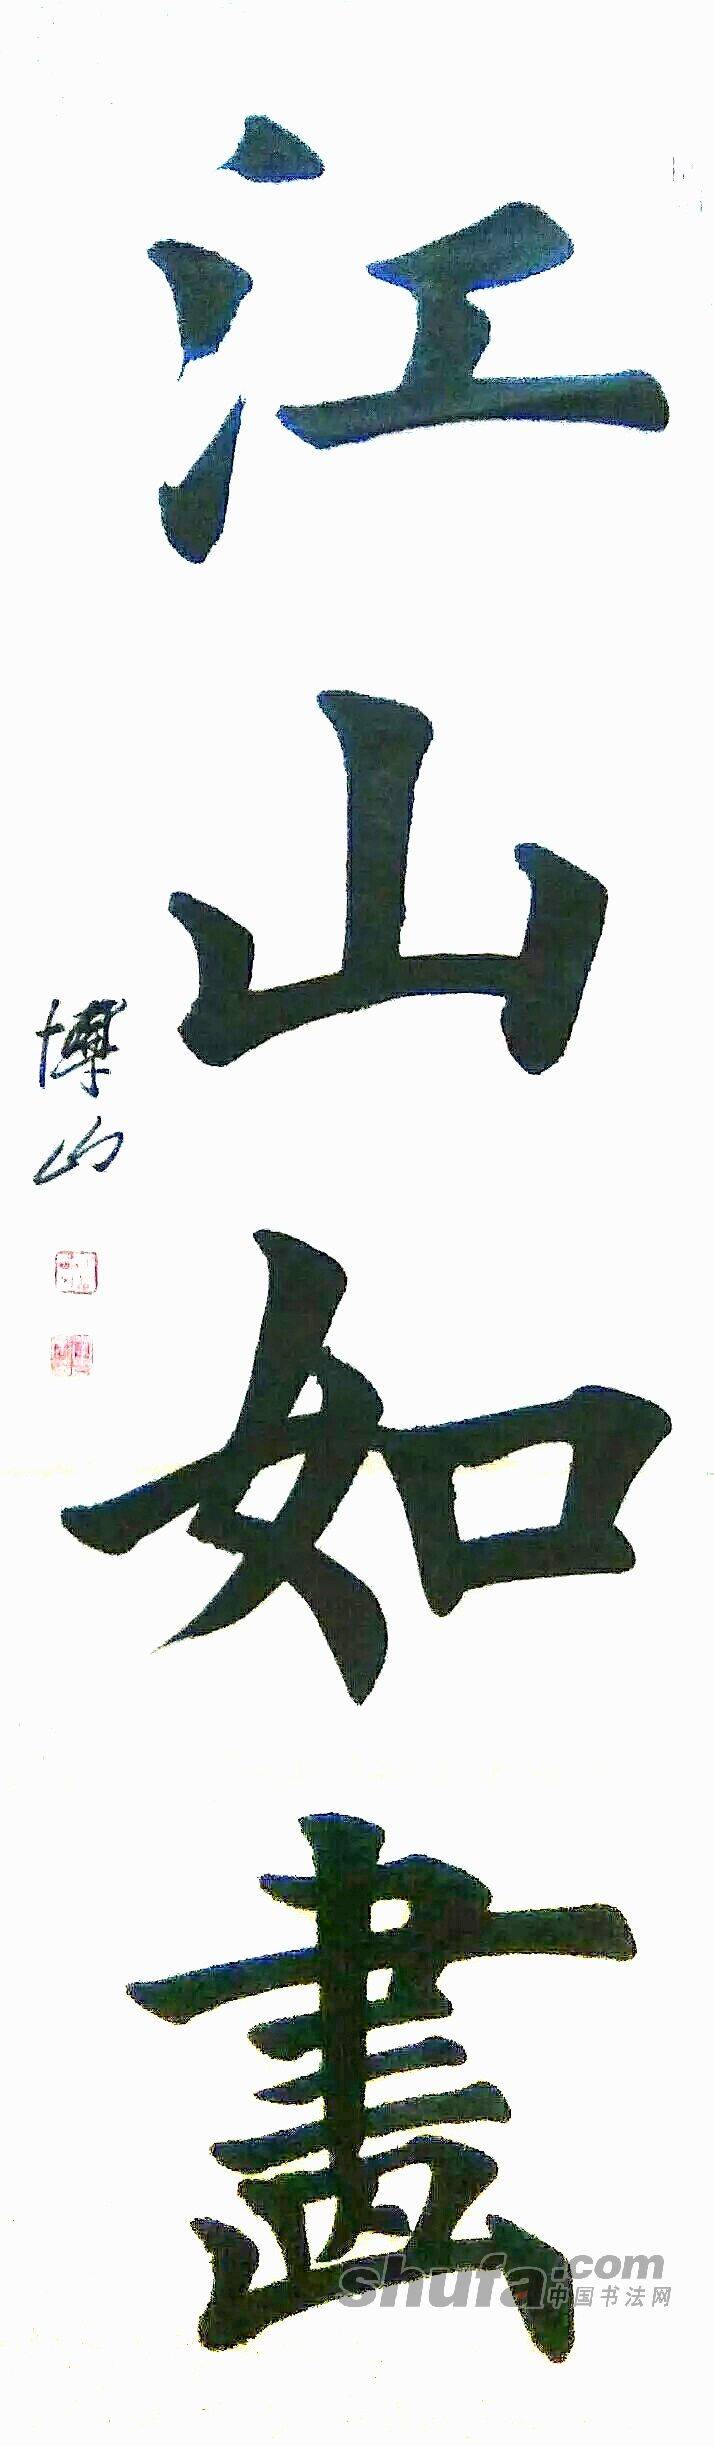 江山如畫
博山
shufa.com
中国书法网